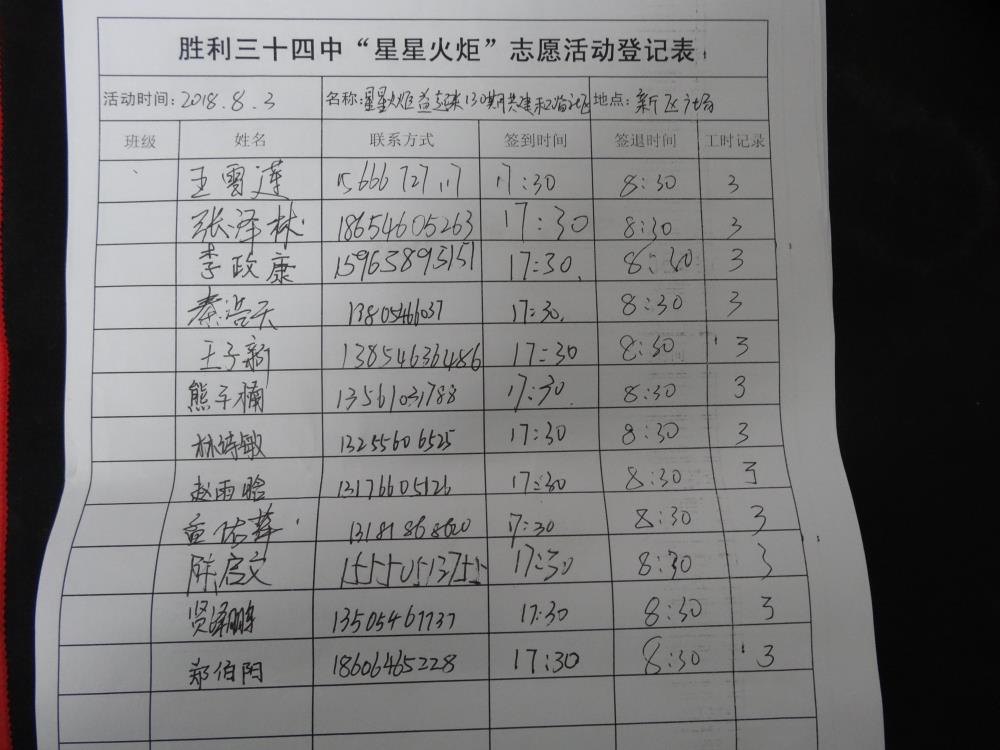 胜利三十四中“星星火炬”志愿活动登记表
活动时间：2018.8.3 名称：星星火炬益起来130期共建和谐社区 地点：新区广场
班级 姓名 联系方式 签到时间 签退时间 工时记录
王雪莲 15666727117 17:30 8:30 3
张泽林 18654605263 17:30 8:30 3
李政康 15963893151 17:30 8:30 3
秦浩天 13805466037 17:30 8:30 3
王子新 13854636486 17:30 8:30 3
熊子楠 13561031788 17:30 8:30 3
林诗敏 13255606525 17:30 8:30 3
赵雨晗 13176605126 17:30 8:30 3
13181868620 17:30 8:30 3
陈启文 17:30 8:30 3
13505467737 17:30 8:30 3
郑伯阳 18606465228 17:30 8:30 3